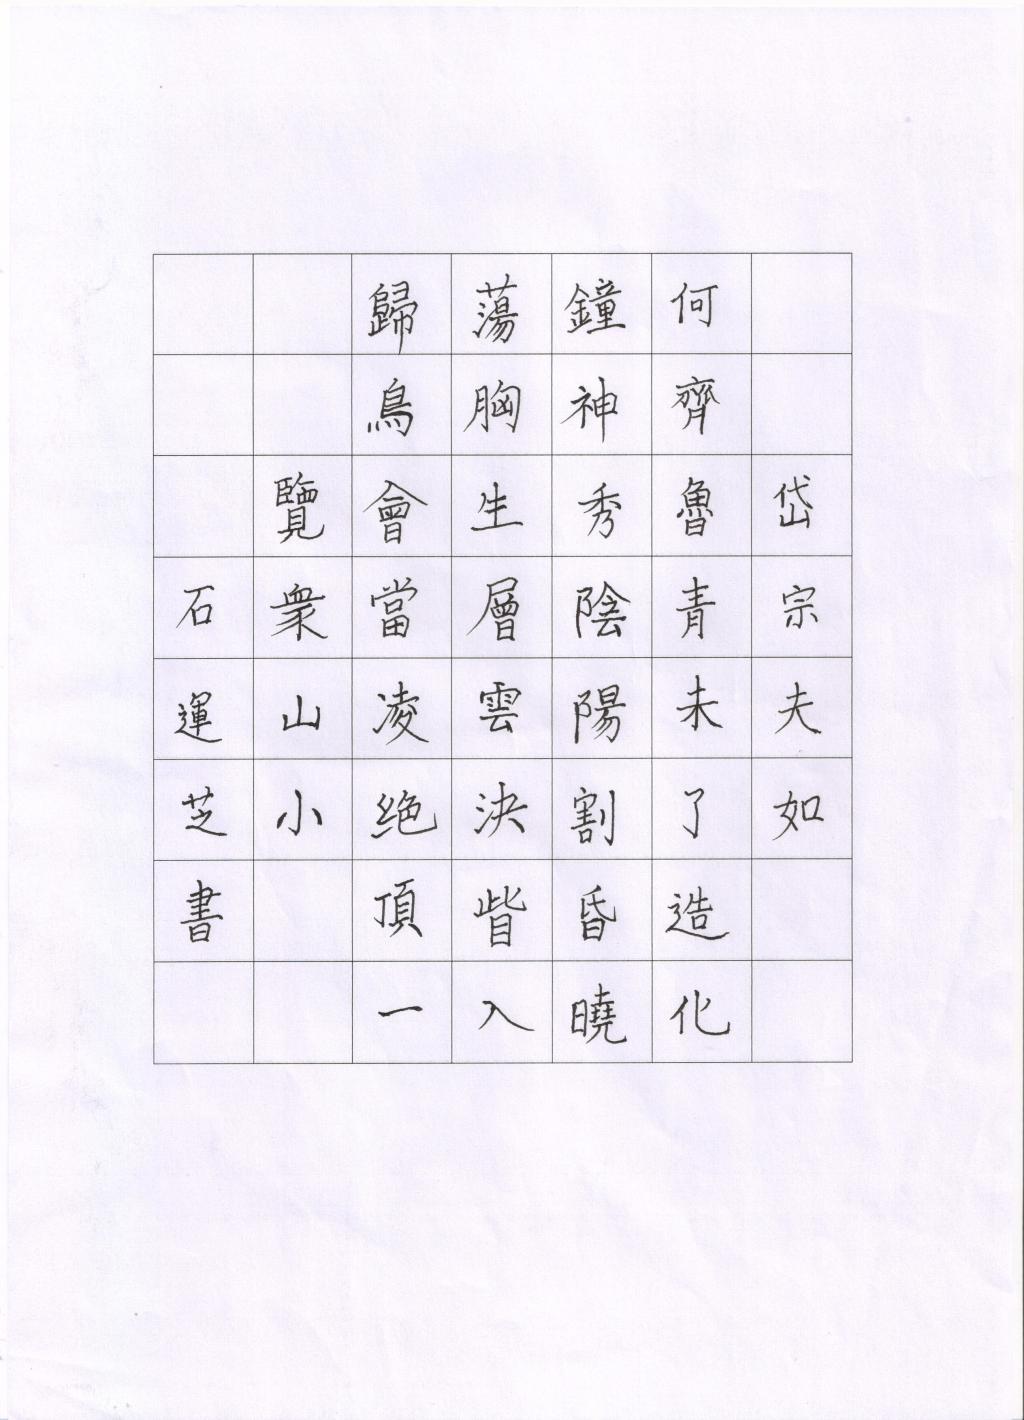 岱宗夫如
何齊魯青未了造化
鐘神秀陰陽割昏曉
蕩胸生層雲決眥入
歸鳥會當凌绝頂一
覽衆山小
石運芝書